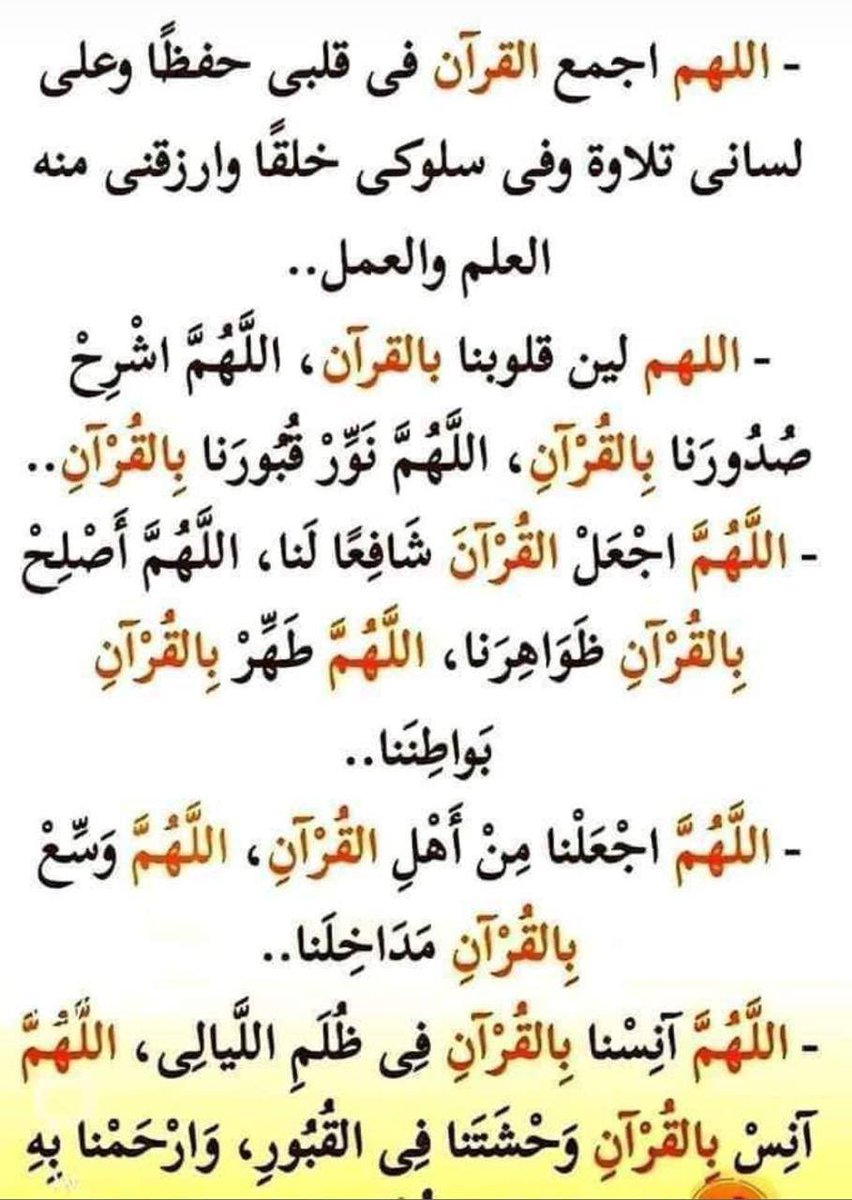 - اللهم اجمع القرآن فى قلبى حفظًا وعلى
لسانى تلاوة وفى سلوكى خلقًا وارزقنى منه
العلم والعمل..
- اللهم لين قلوبنا بالقرآن، اللَّهُمَّ اشْرِحْ
صُدُورَنا بِالقُرْآنِ، اللَّهُمَّ نَوِّرْ قُبُورَنا بِالقُرْآنِ..
- اللَّهُمَّ اجْعَلْ القُرْآنَ شَافِعًا لَنا، اللَّهُمَّ أَصْلِحْ
بِالقُرْآنِ ظَوَاهِرَنا، اللَّهُمَّ طَهِّرْ بِالقُرْآنِ
بَواطِنَنا..
- اللَّهُمَّ اجْعَلْنا مِنْ أَهْلِ القُرْآنِ، اللَّهُمَّ وَسِّعْ
بِالقُرْآنِ مَدَاخِلَنا..
- اللَّهُمَّ آنِسْنا بِالقُرْآنِ فِى ظُلَمِ اللَّيالِى، اللَّهُمَّ
آنِسْ بِالقُرْآنِ وَحْشَتَنا فِى القُبُورِ، وَارْحَمْنا بِهِ